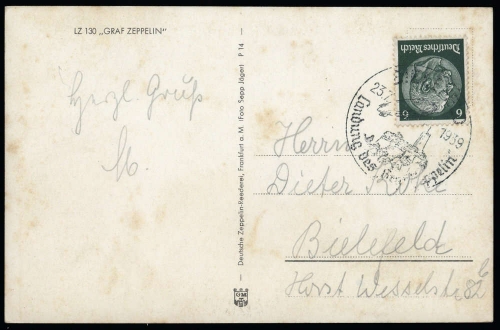 LZ 130 „GRAF ZEPPELIN"
Herzl Gruß
M
Deutsche Zeppelin-Reederei, Frankfurt a. M. (Foto Sepp Jäger) P 14
Deutsches Reich
6 6
23.7.1939
Landung des Graf Zeppelin
Herrn
Dieter
Bielefeld
Horst Wesselstr
82